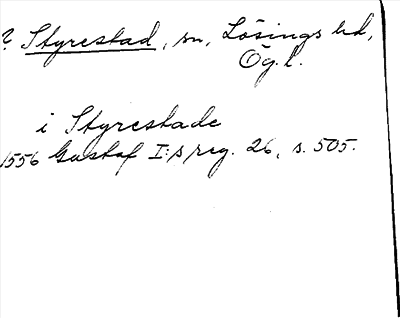 ? Styrestad, sn, Lösings hd,
Ög.l.
i Styrestade
1556 Gustaf I:s reg. 26, s. 505.